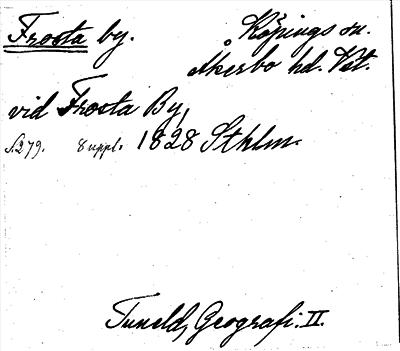 Frosta by. Köpings sn.
Åkerbo hd. Vst.
vid Frosta By,
S.279. 8 uppl. 1828 Sthlm.
Tuneld, Geografi. II.